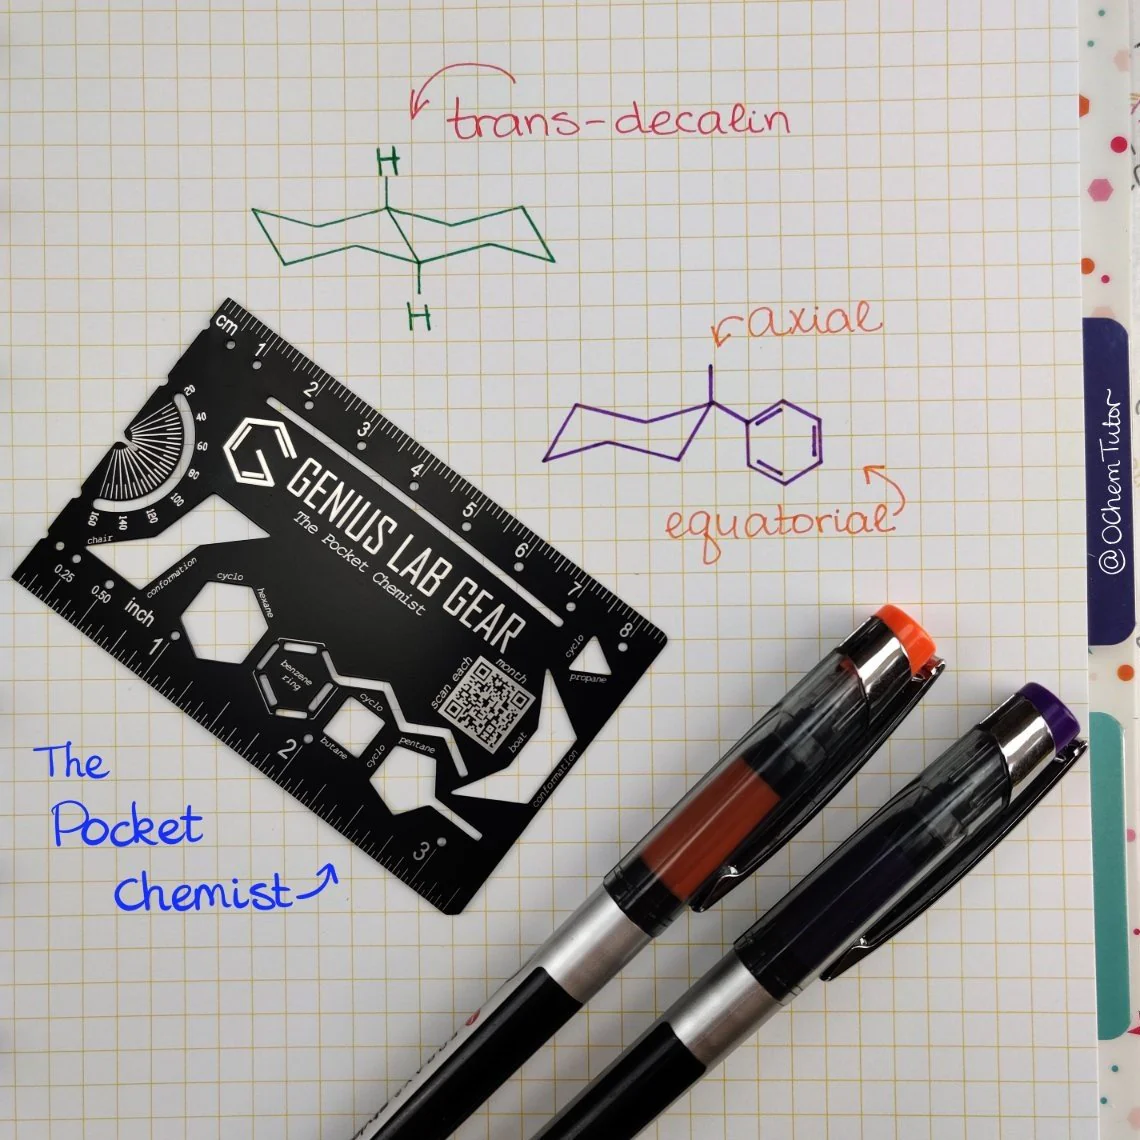 trans-decalin
H
H
axial
equatorial
@OChemTutor
cm 1 2 3 4 5 6 7 8
20
40
60
80
100
120
140
160
GENIUS LAB GEAR
The Pocket Chemist
chair
conformation
0.25
0.50
inch 1 2 3
cyclo
hexane
benzene
ring
cyclo
butane
cyclo
pentane
scan each
month
boat
conformation
cyclo
propane
The
Pocket
Chemist